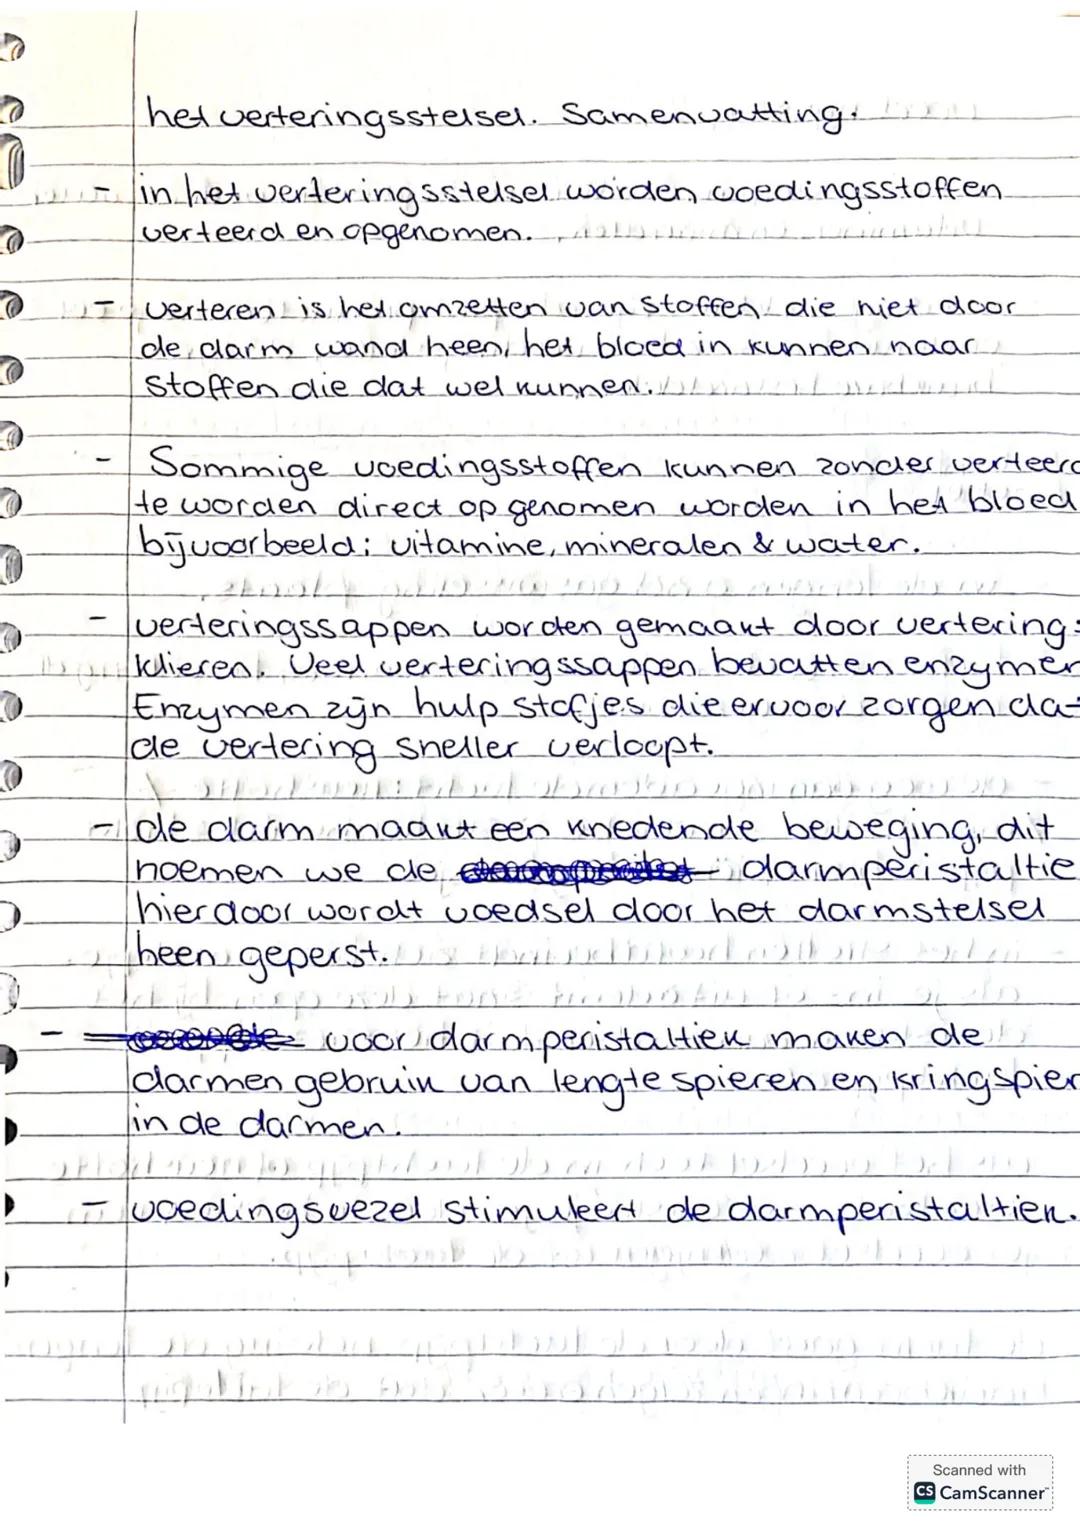 het verteringsstelsel. Samenvatting.
- in het verteringsstelsel worden voedingsstoffen
verteerd en opgenomen.
- verteren is het omzetten van stoffen die niet door
de darm wand heen het bloed in kunnen naar
stoffen die dat wel kunnen.
- Sommige voedingsstoffen kunnen zonder verteerd
te worden direct op genomen worden in het bloed
bijvoorbeeld: vitamine, mineralen & water.
- verteringssappen worden gemaakt door vertering-
klieren. Veel verteringssappen bevatten enzymen
Enzymen zijn hulp stofjes die ervoor zorgen dat
de vertering sneller verloopt.
- de darm maakt een knedende beweging, dit
noemen we de darmperistaltie
hierdoor wordt voedsel door het darmstelsel
heen geperst.
- voor darmperistaltiek maken de
darmen gebruik van lengte spieren en kringspier
in de darmen.
- voedingsvezel stimuleert de darmperistaltiek.
Scanned with
CS CamScanner